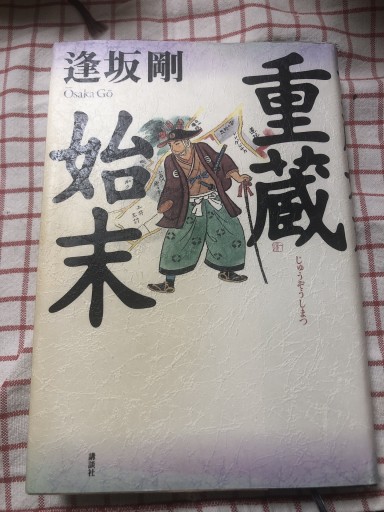 逢坂剛
Ōsaka Gō
重蔵
始末
じゅうぞうしまつ
講談社